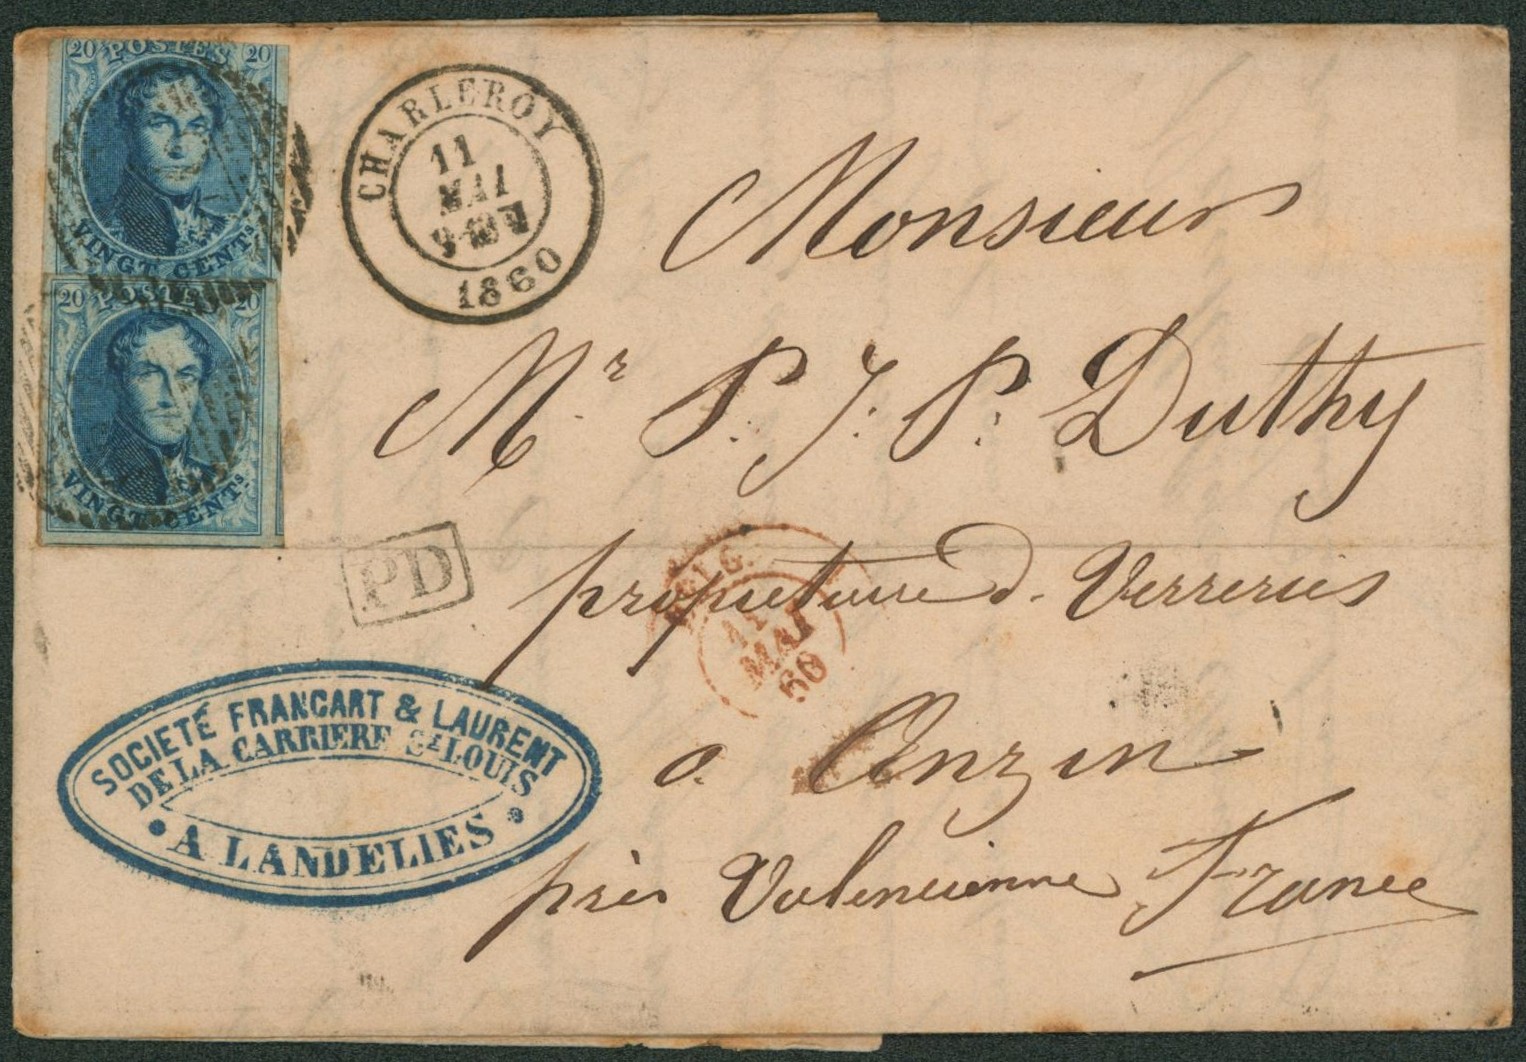 20 POSTES 20
VINGT CENTS
20 POSTES 20
VINGT CENTS
CHARLEROY
11
MAI
1860
Monsieur
Mr P. J. P. Duthy
PD
propriétaire d. Verreries
BELG.
11
MAI
60
a Anzin
près Valencienne France
SOCIETÉ FRANCART & LAURENT
DE LA CARRIERE ST LOUIS
• A LANDELIES •